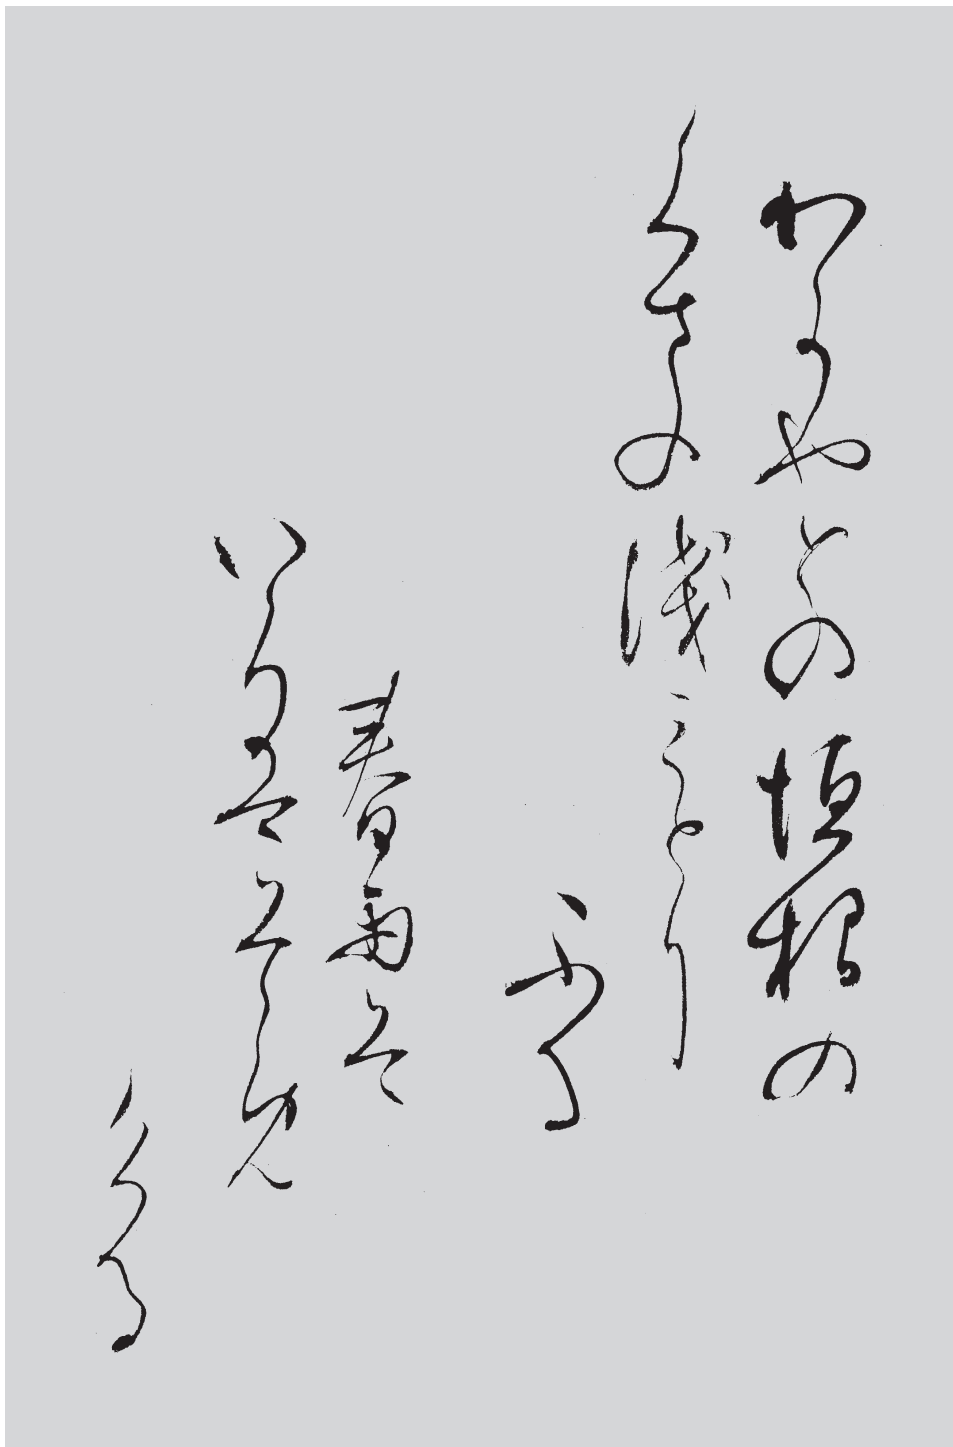 わかやとの垣根の
くさの浅みとり
ふる
春雨そ
いろはそめ
ける